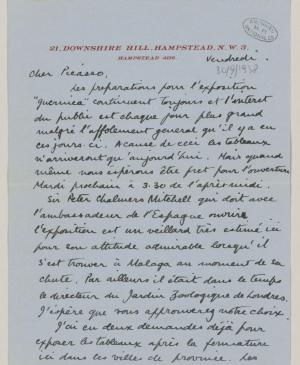 21, DOWNSHIRE HILL, HAMPSTEAD, N.W. 3.
HAMPSTEAD
Vendredi
30/9/1938
Cher Picasso,
Les préparations pour l'exposition
"Guernica" continuent toujours et l'intérêt
du public est chaque jour plus grand
malgré l'affolement général qu'il y a en
ces jours ci. A cause de ceci les tableaux
n'arriveront qu'aujourd'hui. Mais quand
même nous espérons être prêt pour l'ouverture
Mardi prochain à 3.30 de l'après midi.
Sir Peter Chalmers Mitchell qui doit avec
l'ambassadeur de l'Espagne ouvrir
l'exposition est un veillard très estimé ici
pour son attitude admirable lorsqu'il
s'est trouver à Malaga au moment de sa
chute. Par ailleurs il était dans le temps
le directeur du Jardin Zoologique de Londres.
J'espère que vous approuverez notre choix.
J'ai eu deux demandes déjà pour
exposer les tableaux après la fermature
ici dans les villes de province. Les